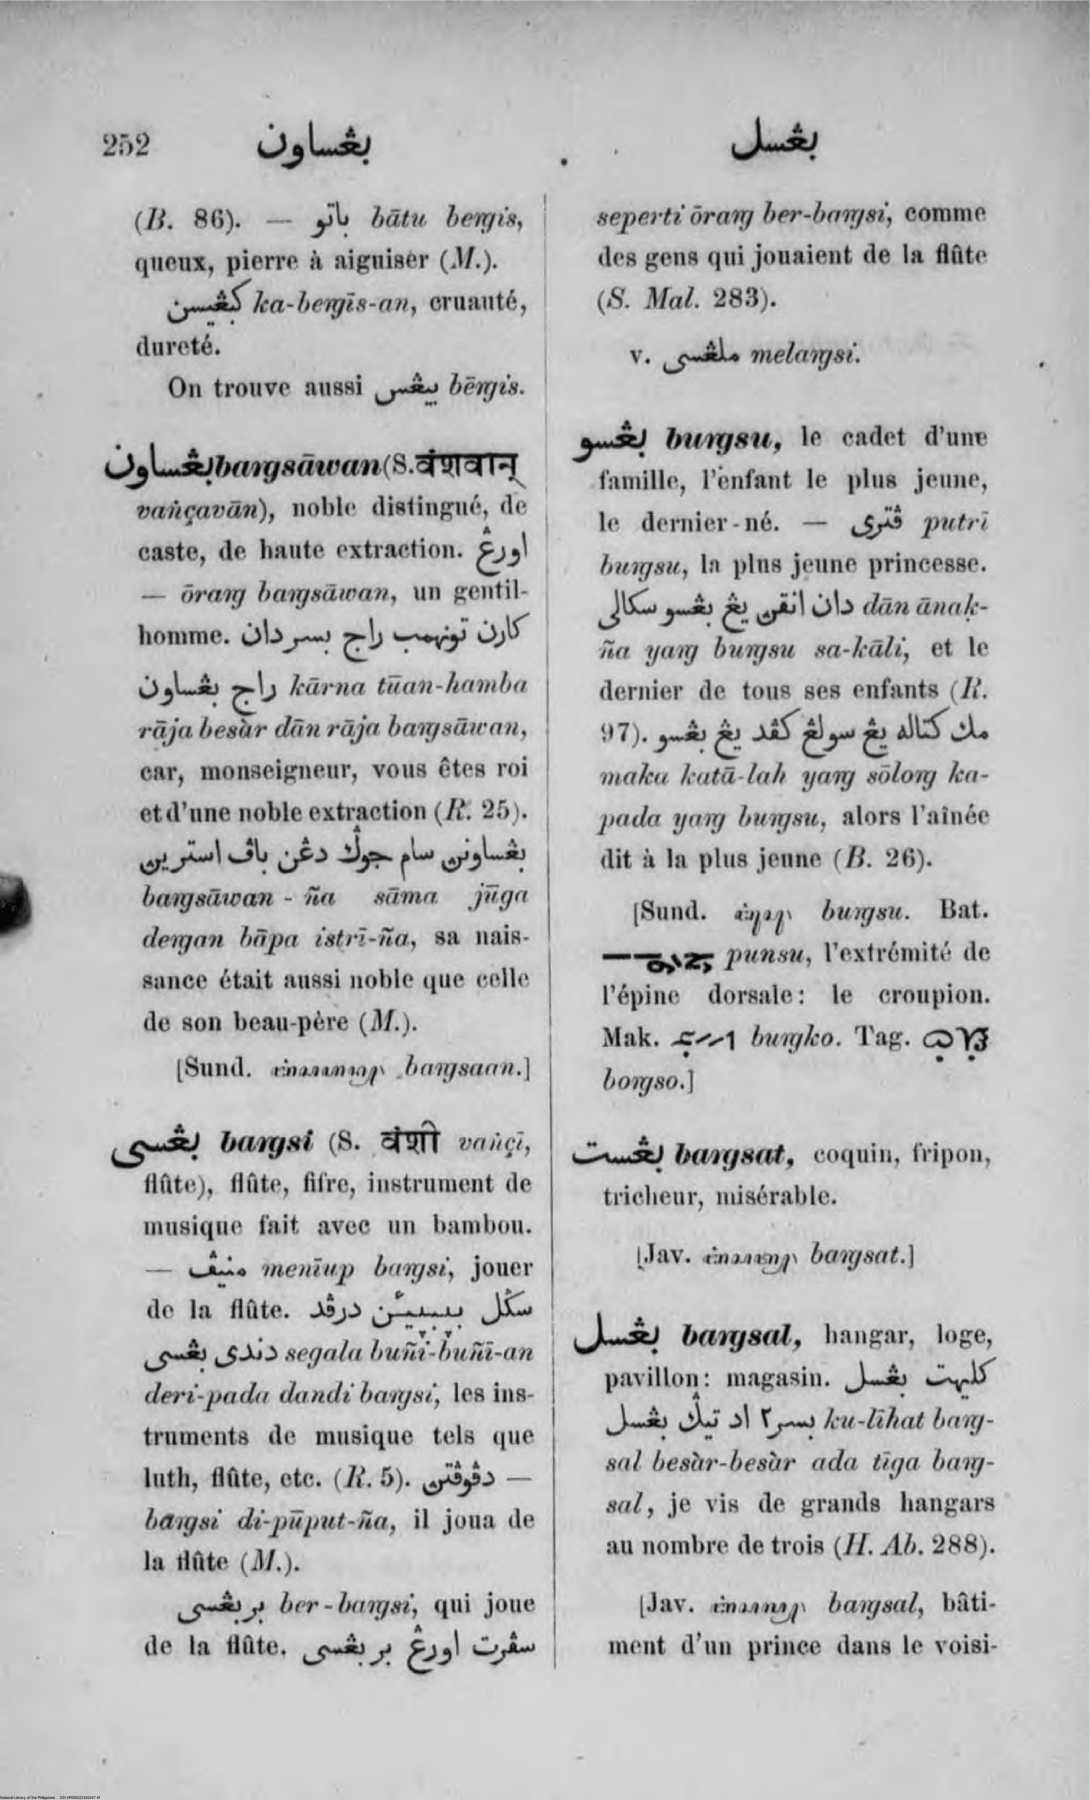 252 بڠساون بڠسل
(B. 86). — باتو bātu beŋgis,
queux, pierre à aiguiser (M.).
كبڠيسن ka-beŋgīs-an, cruauté,
dureté.
On trouve aussi بيڠس bēŋgis.
بڠساون baŋsāwan (S. वंशवान्
vaṅçavān), noble distingué, de
caste, de haute extraction. اورڠ
— ōraŋ baŋsāwan, un gentil-
homme. كارن تونهمب راج بسر دان
راج بڠساون kārna tūan-hamba
rāja besàr dān rāja baŋsāwan,
car, monseigneur, vous êtes roi
et d'une noble extraction (R. 25).
بڠساونن سام جوݢ دڠن باڤ استرين
baŋsāwan - ña sāma jūga
deŋan bāpa istrī-ña, sa nais-
sance était aussi noble que celle
de son beau-père (M.).
[Sund. baŋsaan.]
بڠسى baŋsi (S. वंशी vaṅçī,
flûte), flûte, fifre, instrument de
musique fait avec un bambou.
— منيڤ menīup baŋsi, jouer
de la flûte. سݢل بيبيئن درڤد
دندى بڠسى segala buñi-buñī-an
deri-pada dandi baŋsi, les ins-
truments de musique tels que
luth, flûte, etc. (R. 5). دڤوڤتن —
baŋsi di-pūput-ña, il joua de
la flûte (M.).
بربڠسى ber-baŋsi, qui joue
de la flûte. سڤرت اورڠ بربڠسى
seperti ōraŋ ber-baŋsi, comme
des gens qui jouaient de la flûte
(S. Mal. 283).
v. ملڠسى melaŋsi.
بڠسو buŋsu, le cadet d'une
famille, l'enfant le plus jeune,
le dernier-né. — ڤترى putrī
buŋsu, la plus jeune princesse.
دان انقن يڠ بڠسو سكالى dān ānaḳ-
ña yaŋ buŋsu sa-kāli, et le
dernier de tous ses enfants (R.
97). مك كتاله يڠ سولڠ كڤد يڠ بڠسو
maka katā-lah yaŋ sōloŋ ka-
pada yaŋ buŋsu, alors l'aînée
dit à la plus jeune (B. 26).
[Sund. buŋsu. Bat.
punsu, l'extrémité de
l'épine dorsale: le croupion.
Mak. buŋko. Tag.
boŋso.]
بڠست baŋsat, coquin, fripon,
tricheur, misérable.
[Jav. baŋsat.]
بڠسل baŋsal, hangar, loge,
pavillon: magasin. كليهت بڠسل
بسر٢ اد تيݢ بڠسل ku-līhat baŋ-
sal besàr-besàr ada tīga baŋ-
sal, je vis de grands hangars
au nombre de trois (H. Ab. 288).
[Jav. baŋsal, bâti-
ment d'un prince dans le voisi-